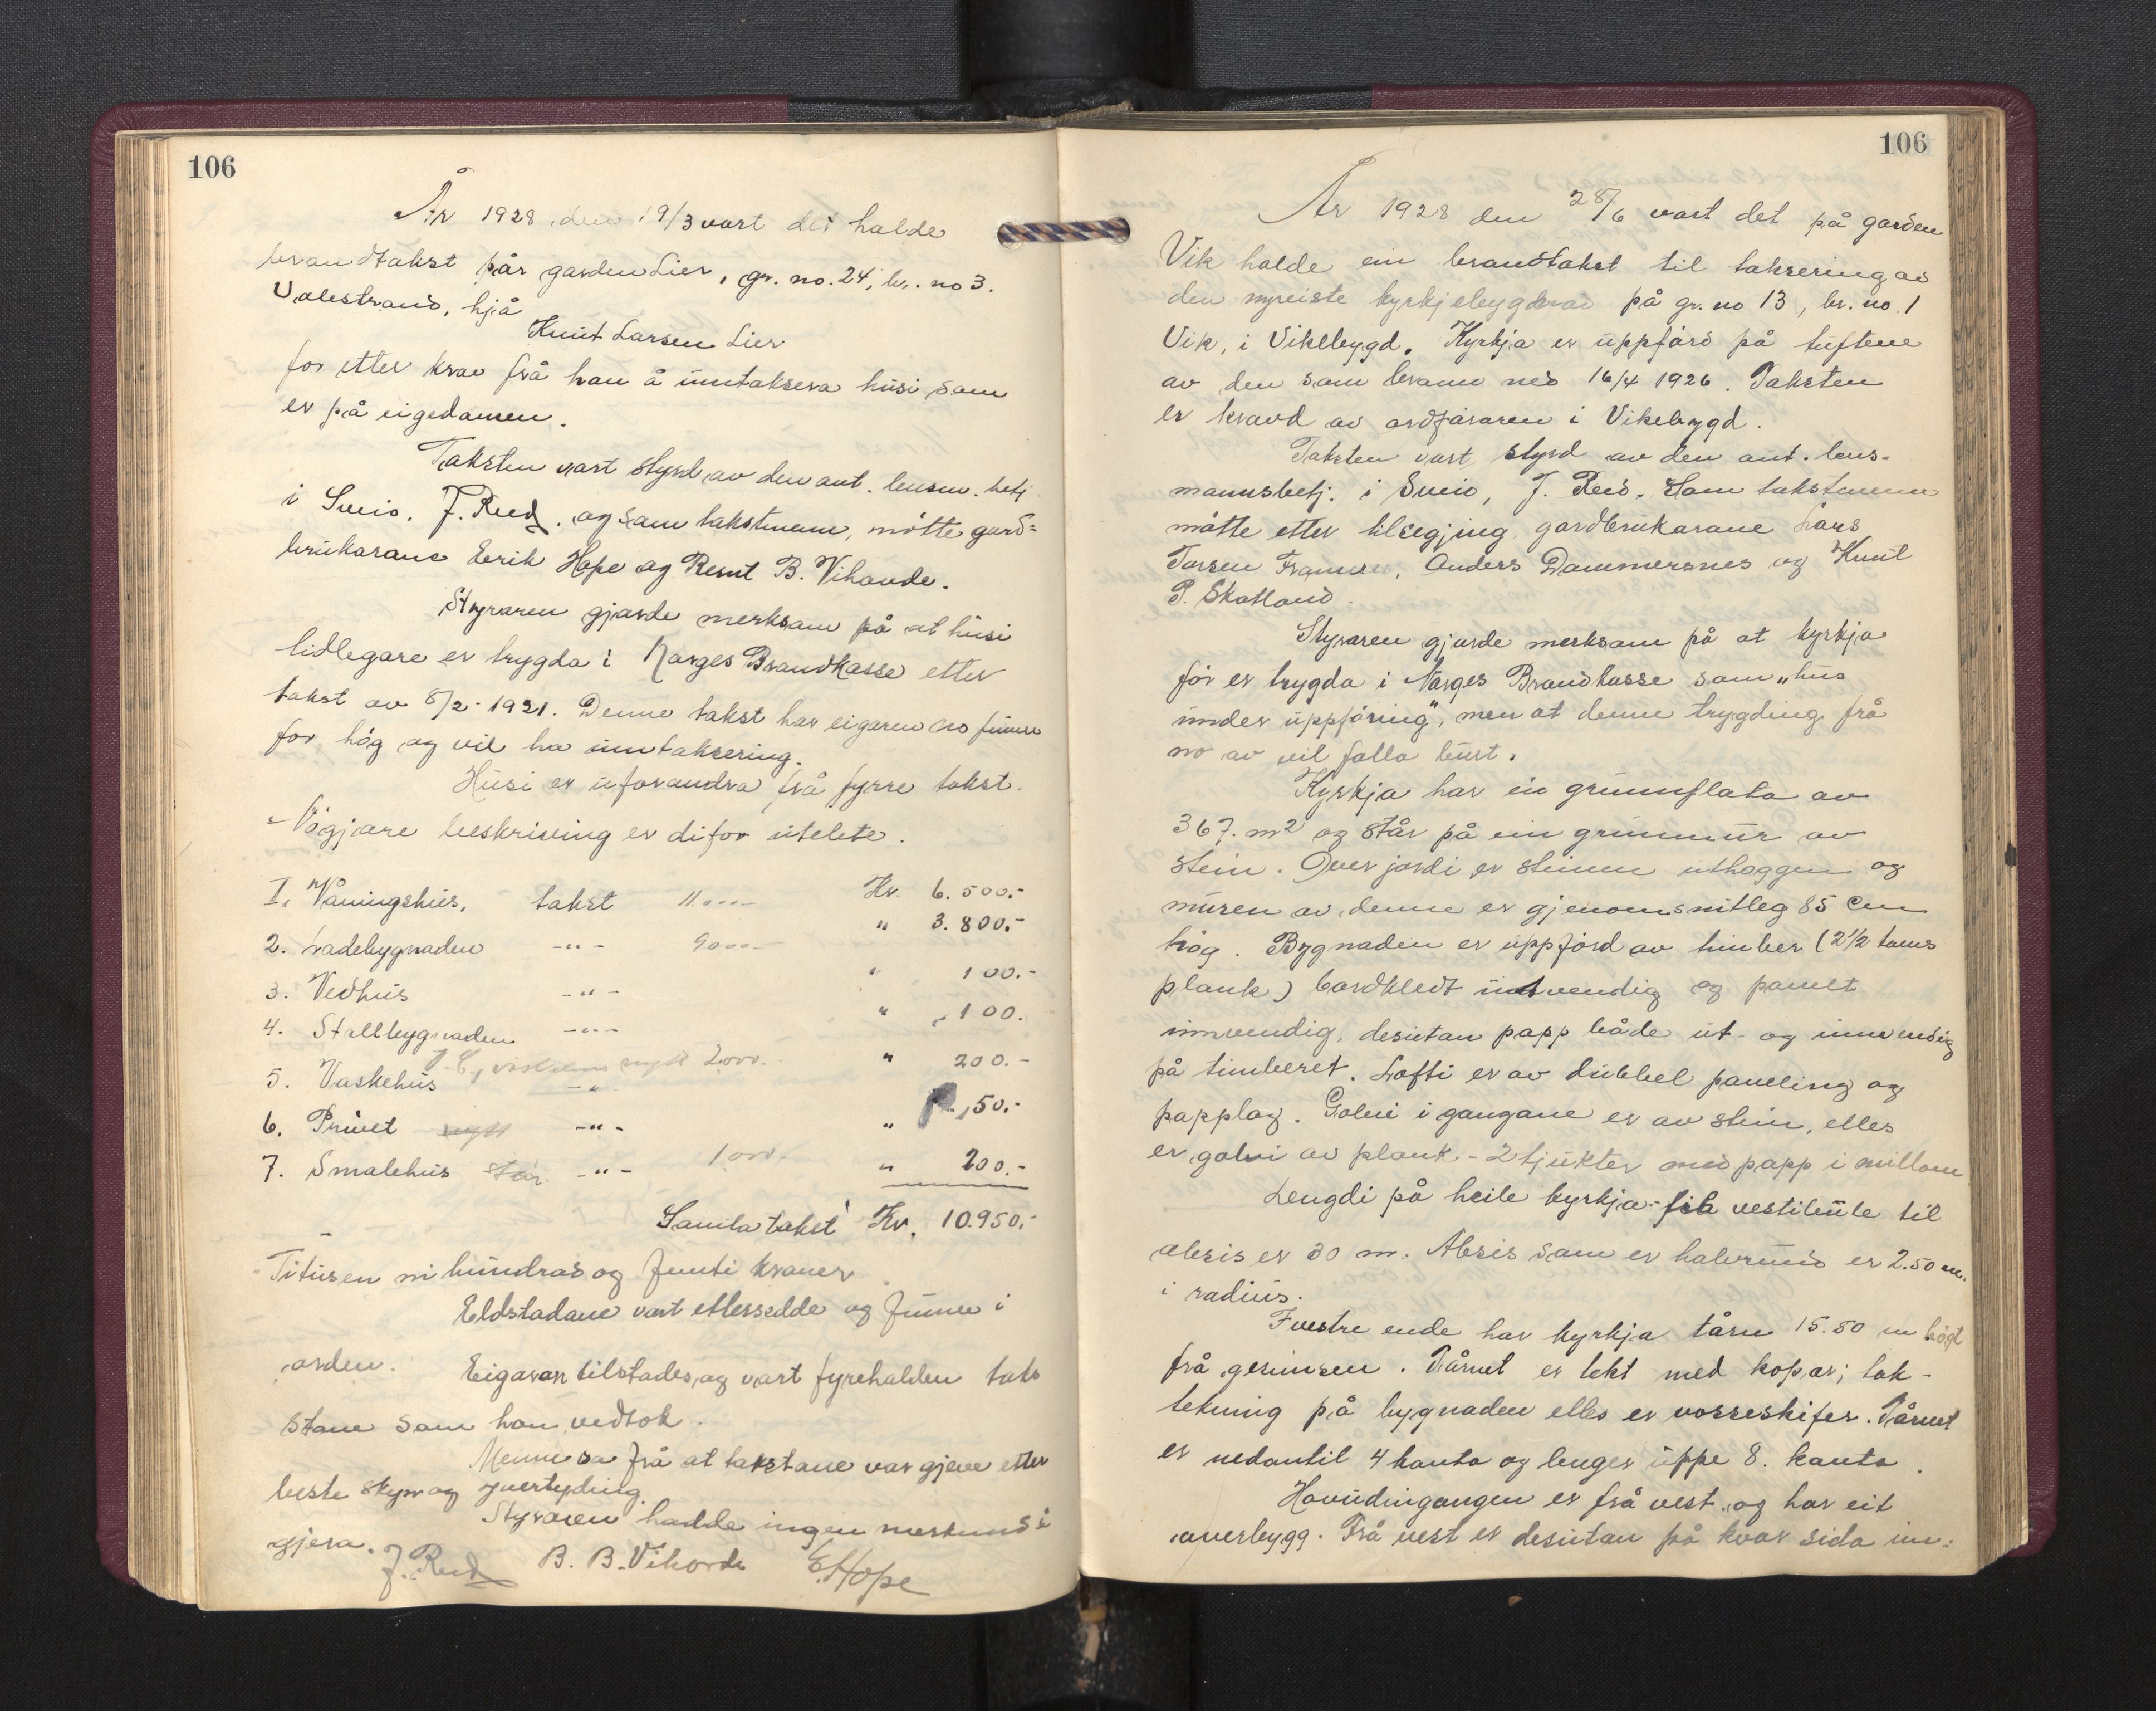 106
År 1928 den 19/3 vart det halde
brandtakst på garden Lier, gr. no. 24, br. no 3.
Valestrand, hjå
Knut Larsen Lier
for etter krav frå han å umtaksera husi som
er på eigedomen.
Taksten vart styrd av den aut. lensm. betj
i Sveio. J. Reed. og som takstmenn, møtte gard=
brukarane Erik Hope og Bernt B. Vihovde.
Styraren gjorde merksam på at husi
tidlegare er trygda i Norges Brandkasse etter
takst av 8/2- 1921. Denne takst har eigaren no funne
for høg og vil ha umtaksering.
Husi er uforandra frå fyrre takst.
Nøgjare beskriving er difor utelete.
I. Våningshus, takst 11000 Kr. 6.500.-
2. Ladebygnaden -"- 9000 " 3.800.-
3. Vedhus -"- " 100.-
4. Stallbygnaden -"- " 100.
5. Vaskehus nytt 2000.- -"- " 200.-
6. Privet nytt -"- " 50.-
7. Smalehus står -"- 1000.- " 200.-
Samla takst Kr. 10.950.-
Titusen ni hundrad og femti kroner
Eldstadane vart ettersedde og funne i
orden. Eigaren tilstades, og vart fyrehalden tak
stane som han vedtok.
Menne sa frå at takstane var gjeve etter
beste skyn og yvertyding.
Styraren hadde ingen merknad å
gjera.
J. Reed B. B. Vihovde E Hope
106
År 1928 den 28/6 vart det på garden
Vik halde ein brandtakst til taksering av
den nyreiste kyrkjebygnad på gr. no 13, br. no. 1
Vik, i Vikebygd. Kyrkja er uppførd på tuftene
av den som brann ned 16/4 1926. Taksten
er kravd av ordføraren i Vikebygd.
Taksten vart styrd av den aut. lens-
mannsbetj. i Sveio, J. Reed. Som takstmenn
møtte etter tilsegjing, gardbrukarane Lars
Torsen, Anders Dommersnes og Knut
P. Skotland.
Styraren gjorde merksam på at kyrkja
før er trygda i Norges Brandkasse som "hus
under uppføring", men at denne trygding frå
no av vil falla burt.
Kyrkja har ei grunnflata av
367. m2 og står på ein grunnmur av
stein. Over jordi er steinen uthoggen og
muren av denne er gjenomsnitleg 85 cm
høg. Bygnaden er uppførd av timber (2 1/2 toms
plank) bordkledt utvendig og panelt
innvendig, desutan papp både ut- og innvendig
på timberet. Lofti er av dubbel paneling og
papplag. Golvi i gangane er av stein, elles
er golvi av plank - 2 tjukter med papp i millom
Lengdi på heile kyrkja - frå vestibule til
absis er 30 m. Absis som er halvrund er 2.50 m.
i radius.
I vestre ende har kyrkja tårn 15.50 m høgt
frå gesimsen. Tårnet er tekt med kopar; tak-
tekning på bygnaden elles er vosseskifer. Tårnet
er nedantil 4 kanta og lenger uppe 8. kanta.
Hovudingangen er frå vest og har eit
overbygg. Frå vest er desutan på kvar sida in=